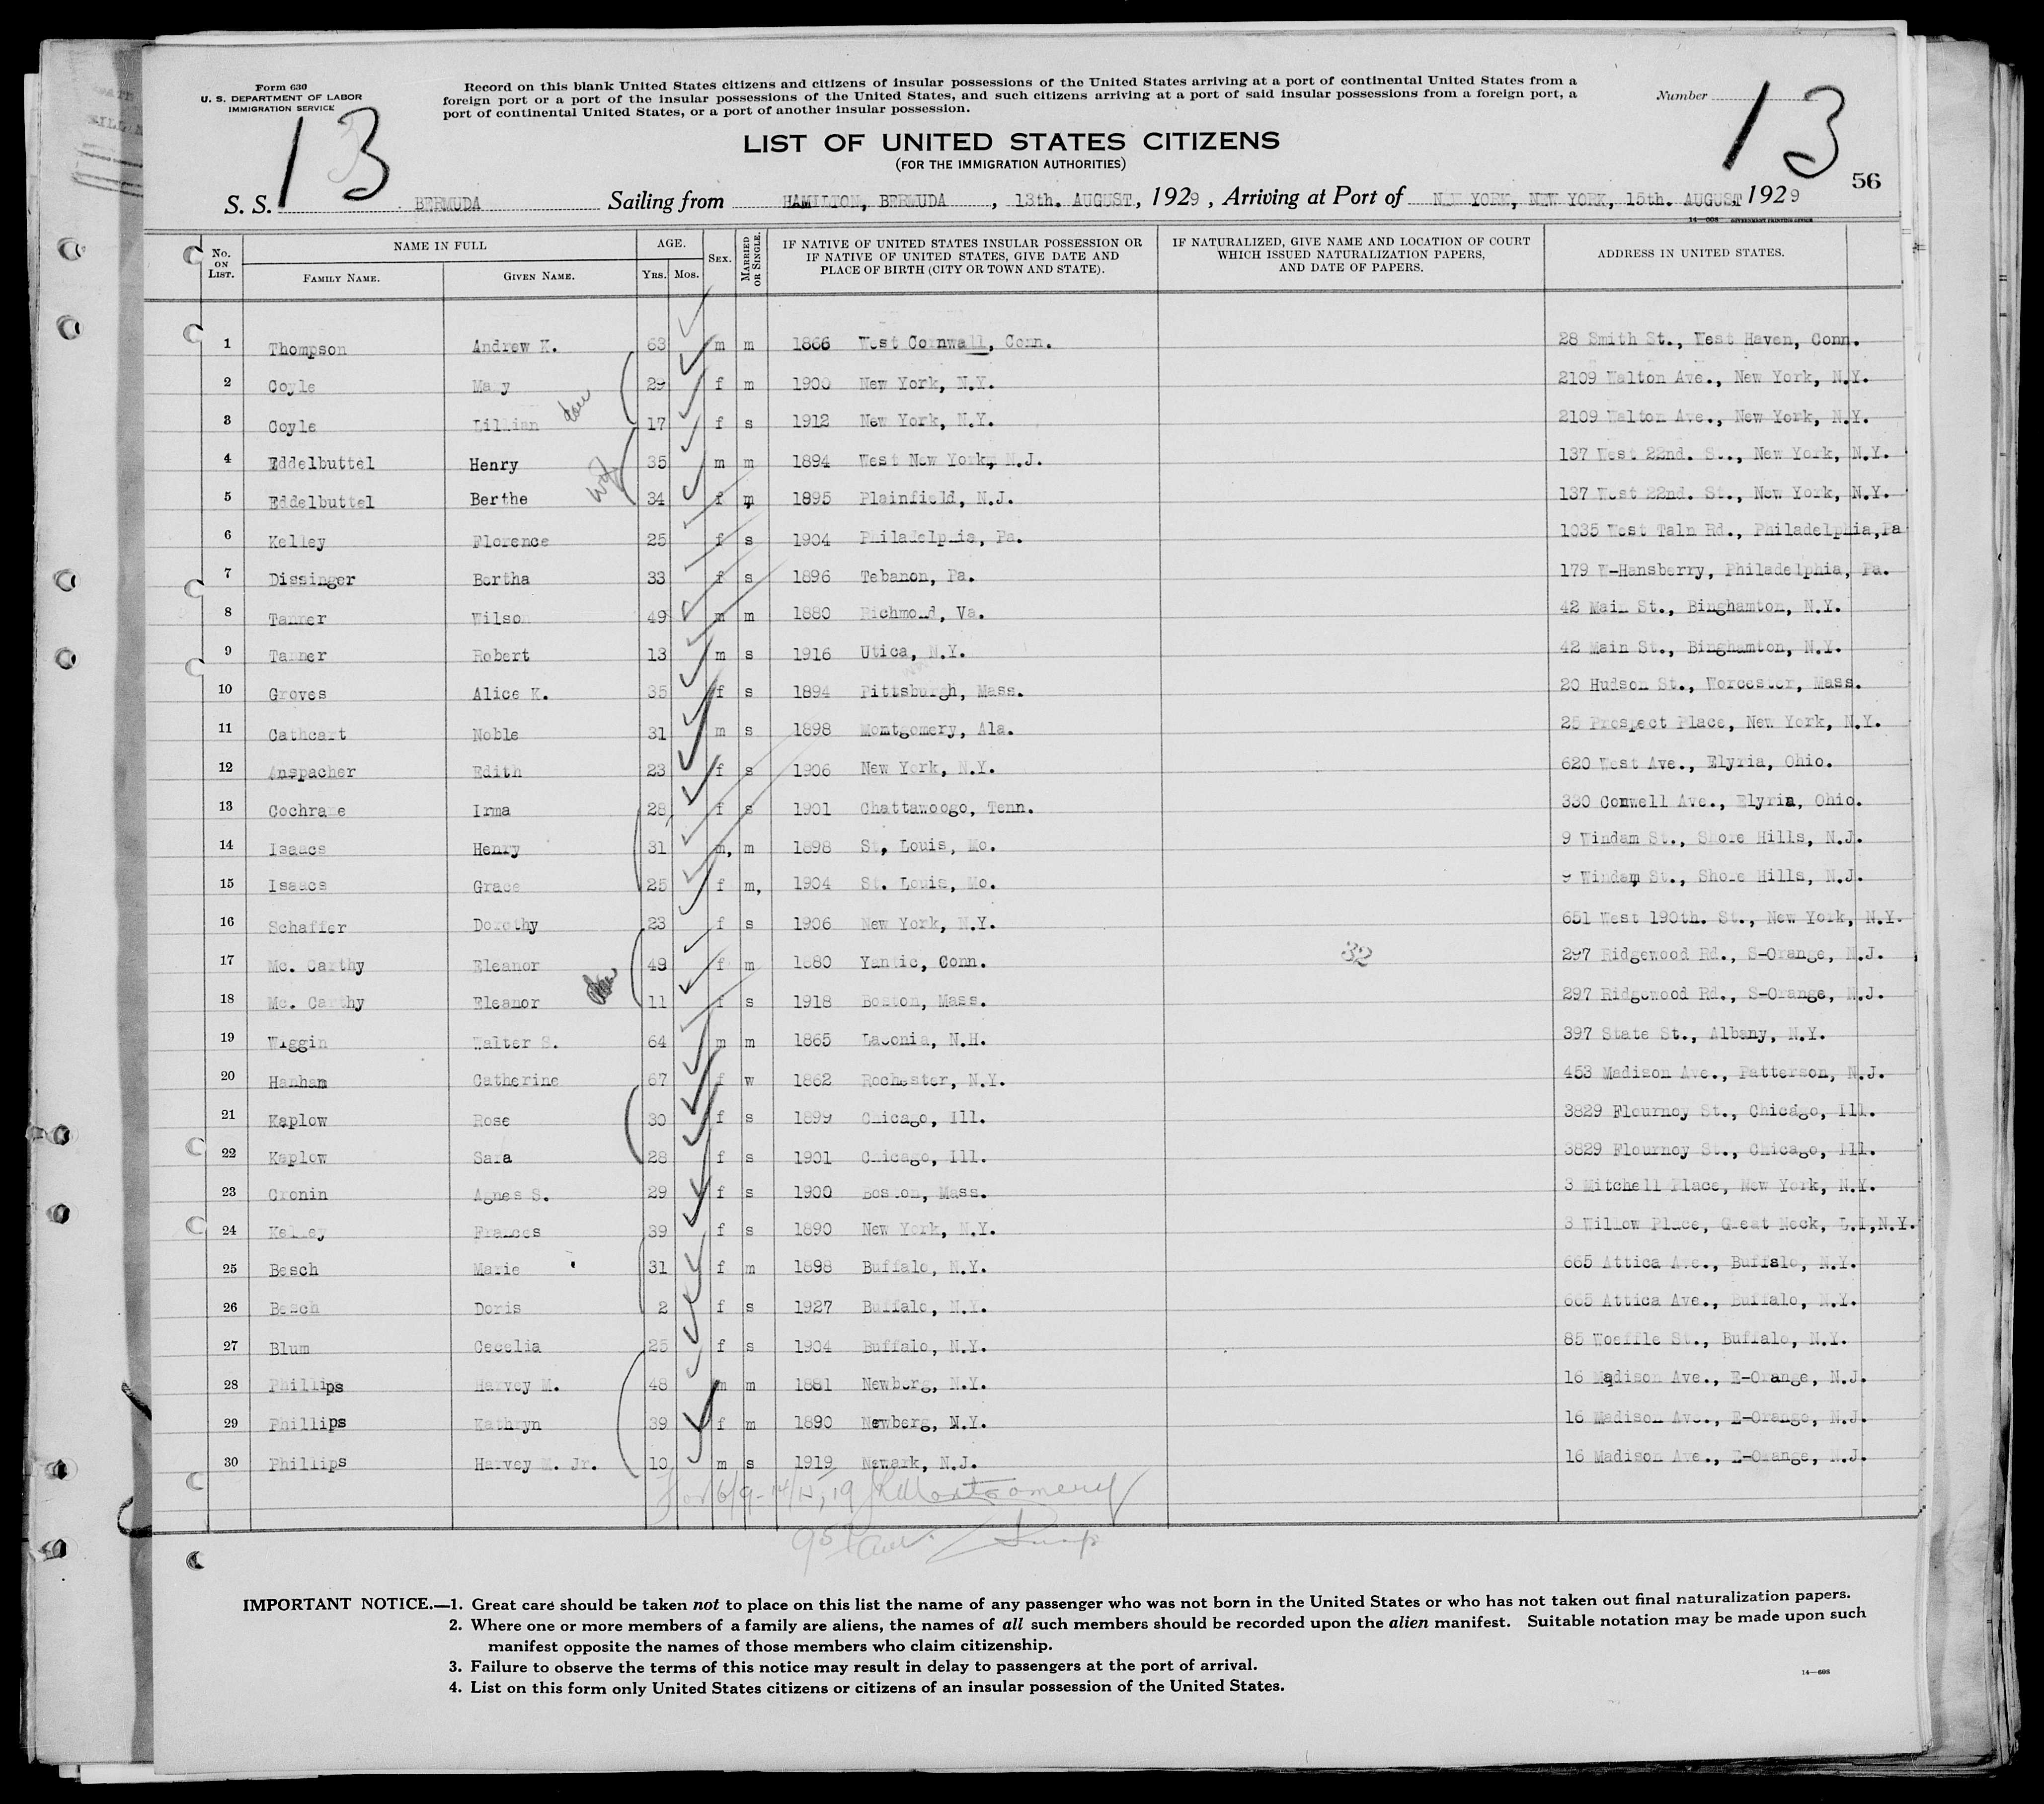 Form 630
U. S. DEPARTMENT OF LABOR
IMMIGRATION SERVICE
Record on this blank United States citizens and citizens of insular possessions of the United States arriving at a port of continental United States from a
foreign port or a port of the insular possessions of the United States, and such citizens arriving at a port of said insular possessions from a foreign port, a
port of continental United States, or a port of another insular possession.
Number
13
13
LIST OF UNITED STATES CITIZENS
(FOR THE IMMIGRATION AUTHORITIES)
56
S. S. BERMUDA Sailing from HAMILTON, BERMUDA, 13th. AUGUST, 1929, Arriving at Port of NEW YORK, NEW YORK, 15th. AUGUST 1929
14—608 GOVERNMENT PRINTING OFFICE
No. ON LIST. NAME IN FULL FAMILY NAME. GIVEN NAME. AGE. YRS. MOS. SEX. MARRIED OR SINGLE. IF NATIVE OF UNITED STATES INSULAR POSSESSION OR IF NATIVE OF UNITED STATES, GIVE DATE AND PLACE OF BIRTH (CITY OR TOWN AND STATE). IF NATURALIZED, GIVE NAME AND LOCATION OF COURT WHICH ISSUED NATURALIZATION PAPERS, AND DATE OF PAPERS. ADDRESS IN UNITED STATES.
1 Thompson Andrew K. 63 m m 1866 West Cornwall, Conn. 28 Smith St., West Haven, Conn.
2 Coyle Mary 29 f m 1900 New York, N.Y. 2109 Walton Ave., New York, N.Y.
3 Coyle Lillian dau 17 f s 1912 New York, N.Y. 2109 Walton Ave., New York, N.Y.
4 Eddelbuttel Henry 35 m m 1894 West New York, N.J. 137 West 22nd. St., New York, N.Y.
5 Eddelbuttel Berthe wf 34 f m 1895 Plainfield, N.J. 137 West 22nd. St., New York, N.Y.
6 Kelley Florence 25 f s 1904 Philadelphia, Pa. 1035 West Taln Rd., Philadelphia, Pa
7 Dissinger Bertha 33 f s 1896 Tebanon, Pa. 179 W-Hansberry, Philadelphia, Pa.
8 Tanner Wilson 49 m m 1880 Richmond, Va. 42 Main St., Binghamton, N.Y.
9 Tanner Robert 13 m s 1916 Utica, N.Y. 42 Main St., Binghamton, N.Y.
10 Groves Alice K. 35 f s 1894 Pittsburgh, Mass. 20 Hudson St., Worcester, Mass.
11 Cathcart Noble 31 m s 1898 Montgomery, Ala. 25 Prospect Place, New York, N.Y.
12 Anspacher Edith 23 f s 1906 New York, N.Y. 620 West Ave., Elyria, Ohio.
13 Cochrane Irma 28 f s 1901 Chattawoogo, Tenn. 330 Comwell Ave., Elyria, Ohio.
14 Isaacs Henry 31 m, m 1898 St, Louis, Mo. 9 Windam St., Shore Hills, N.J.
15 Isaacs Grace 25 f m, 1904 St. Louis, Mo. 9 Windam St., Shore Hills, N.J.
16 Schaffer Dorothy 23 f s 1906 New York, N.Y. 651 West 190th. St., New York, N.Y.
17 Mc. Carthy Eleanor 49 f m 1880 Yantic, Conn. 32 297 Ridgewood Rd., S-Orange, N.J.
18 Mc. Carthy Eleanor dau 11 f s 1918 Boston, Mass. 297 Ridgewood Rd., S-Orange, N.J.
19 Wiggin Walter S. 64 m m 1865 Laconia, N.H. 397 State St., Albany, N.Y.
20 Hanhan Catherine 67 f w 1862 Rochester, N.Y. 453 Madison Ave., Patterson, N.J.
21 Kaplow Rose 30 f s 1899 Chicago, Ill. 3829 Flournoy St., Chicago, Ill.
22 Kaplow Sara 28 f s 1901 Chicago, Ill. 3829 Flournoy St., Chicago, Ill.
23 Cronin Agnes S. 29 f s 1900 Boston, Mass. 3 Mitchell Place, New York, N.Y.
24 Kelley Frances 39 f s 1890 New York, N.Y. 3 Willow Place, Great Neck, L.I,N.Y.
25 Besch Marie 31 f m 1898 Buffalo, N.Y. 665 Attica Ave., Buffalo, N.Y.
26 Besch Doris 2 f s 1927 Buffalo, N.Y. 665 Attica Ave., Buffalo, N.Y.
27 Blum Cecelia 25 f s 1904 Buffalo, N.Y. 85 Woeffle St., Buffalo, N.Y.
28 Phillips Harvey M. 48 m m 1881 Newberg, N.Y. 16 Madison Ave., E-Orange, N.J.
29 Phillips Kathryn 39 f m 1890 Newberg, N.Y. 16 Madison Ave., E-Orange, N.J.
30 Phillips Harvey M. Jr. 10 m s 1919 Newark, N.J. 16 Madison Ave., E-Orange, N.J.
Montgomery
IMPORTANT NOTICE.—1. Great care should be taken not to place on this list the name of any passenger who was not born in the United States or who has not taken out final naturalization papers.
2. Where one or more members of a family are aliens, the names of all such members should be recorded upon the alien manifest. Suitable notation may be made upon such
manifest opposite the names of those members who claim citizenship.
3. Failure to observe the terms of this notice may result in delay to passengers at the port of arrival.
14—608
4. List on this form only United States citizens or citizens of an insular possession of the United States.